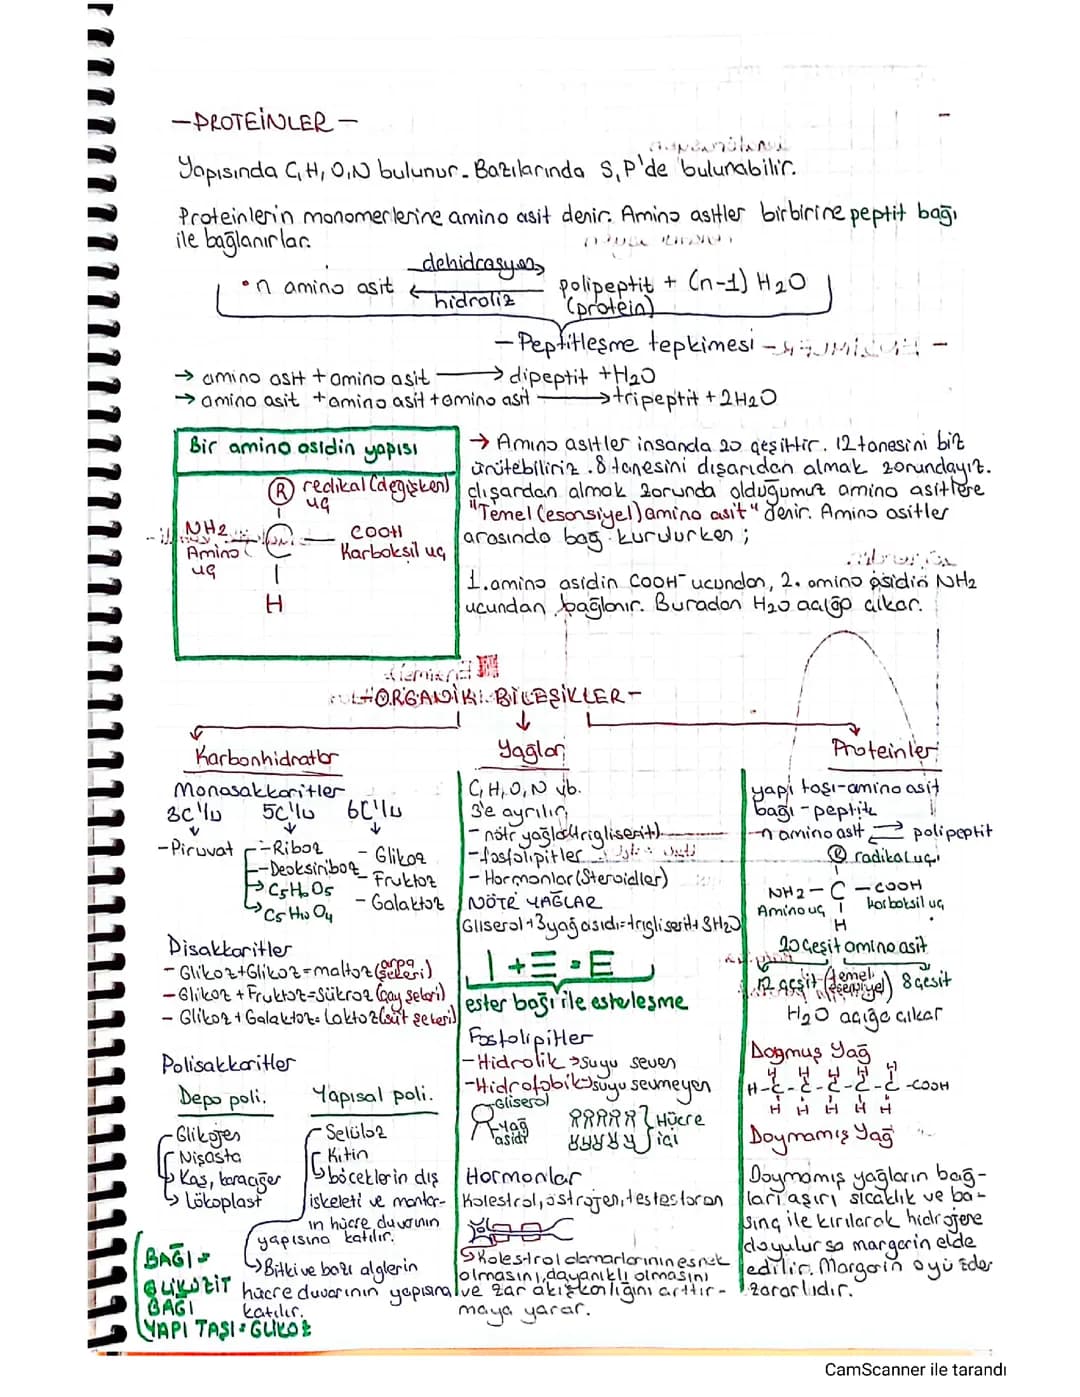 -PROTEİNLER-
Yapısında C,H,O,N bulunur. Bazılarında S,P'de bulunabilir.
Proteinlerin monomerlerine amino asit denir. Amino asitler birbirine peptit bağı
ile bağlanırlar.
dehidrasyon
•n amino asit
polipeptit + (n-1) H2O
hidroliz
(protein)
-Peptitleşme tepkimesi-
→ amino asit + amino asit → dipeptit + H2O
→ amino asit + amino asit + amino asit → tripeptit + 2H2O
Bir amino asidin yapısı
R redikal (değişken)
uç
NH2
C
COOH
Amino
Karboksil uç
uç
H
→ Amino asitler insanda 20 çeşittir. 12 tanesini biz
üretebiliriz. 8 tanesini dışarıdan almak zorundayız.
dışardan almak zorunda olduğumuz amino asitlere
"Temel (esansiyel) amino asit" denir. Amino asitler
arasında bağ kurulurken ;
1. amino asidin COOH⁻ ucundan, 2. amino asidin NH2
ucundan bağlanır. Buradan H2O açığa çıkar.
-ORGANİK BİLEŞİKLER-
Karbonhidratlar
Monosakkaritler
3C'lu 5C'lu 6C'lu
-Piruvat
-Riboz
-Deoksiriboz
→ C5H10O5
→ C5H10O4
- Glikoz
- Fruktoz
- Galaktoz
Disakkaritler
- Glikoz+Glikoz=maltoz (arpa şekeri)
- Glikoz + Fruktoz=Sükroz (çay şekeri)
- Glikoz + Galaktoz= Laktoz (süt şekeri)
Polisakkaritler
Depo poli.
Glikojen
Nişasta
Kas, karaciğer
Lökoplast
Yapısal poli.
- Selüloz
- Kitin
böceklerin dış
iskeleti ve mantar-
ın hücre duvarının
yapısına katılır.
Bitki ve bazı alglerin
hücre duvarının yapısına
katılır.
BAĞI=
GLİKOZİT
BAĞI
YAPI TAŞI=GLİKOZ
Yağlar
C,H,O,N vb.
3'e ayrılır
- nötr yağlar (trigliserit)
-fosfolipitler
- Hormonlar (Steroidler)
NÖTR YAĞLAR
Gliserol+3yağ asidi=trigliserit+3H2O
ester bağı ile esterleşme
Fosfolipitler
-Hidrolik →suyu seven
-Hidrofobik→suyu sevmeyen
Gliserol
yağ
asidi
Hücre
içi
Hormonlar
Kolestrol, östrojen, testesteron
→Kolestrol damarlarının esnek
olmasını, dayanıklı olmasını
ve zar akışkanlığını arttır-
maya yarar.
Proteinler
yapı taşı-amino asit
bağı -peptit
-n amino asit ⇌ polipeptit
R radikal uç
NH2 - C - COOH
Amino uç
karboksil uç
H
20 çeşit amino asit
12 çeşit (temel esansiyel) 8 çeşit
H2O açığa çıkar
Doymuş Yağ
H H H H H
H-C-C-C-C-C-COOH
H H H H H
Doymamış Yağ
Doymamış yağların bağ-
ları aşırı sıcaklık ve ba-
sınç ile kırılarak hidrojene
doyulursa margarin elde
edilir. Margarin
zararlıdır.
CamScanner ile tarandı